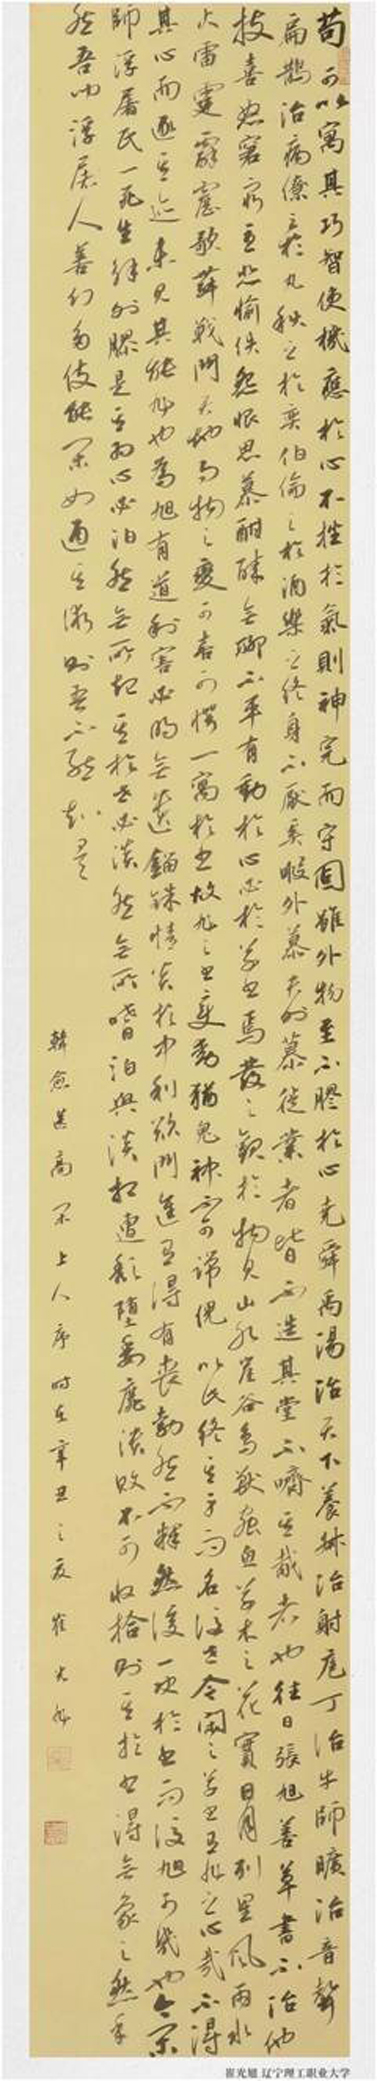 苟可以寓其巧智使機應於心不挫於氣則神完而守固雖外物至不膠於心堯舜禹湯治天下養叔治射庖丁治牛師曠治音聲
扁鵲治病僚之於丸秋之於奕伯倫之於酒樂之終身不厭奚暇外慕夫外慕徙業者皆不造其堂不嚌其胾者也往日張旭善草書不治他
技喜怒窘窮憂悲愉佚怨恨思慕酣醉無聊不平有動於心必於草書焉發之觀於物見山水崖谷鳥獸蟲魚草木之花實日月列星風雨水
火雷霆霹靂歌舞戰鬥天地事物之變可喜可愕一寓於書故旭之書變動猶鬼神不可端倪以此終其身而名後世今閑之草書有旭之心哉不得
其心而逐其迹未見其能旭也為旭有道利害必明無遺錙銖情炎於中利欲鬥進有得有喪勃然不釋然後一決於書而後旭可幾也今閑
師浮屠氏一死生解外膠是其為心必泊然無所起其於世必淡然無所嗜泊與淡相遭頹墮委靡潰敗不可收拾則其於書得無象之然乎
然吾聞浮屠人善幻多伎能閑如通其術則吾不能知矣
韓愈送高閑上人序時在辛丑之夏崔光旭
崔光旭 辽宁理工职业大学